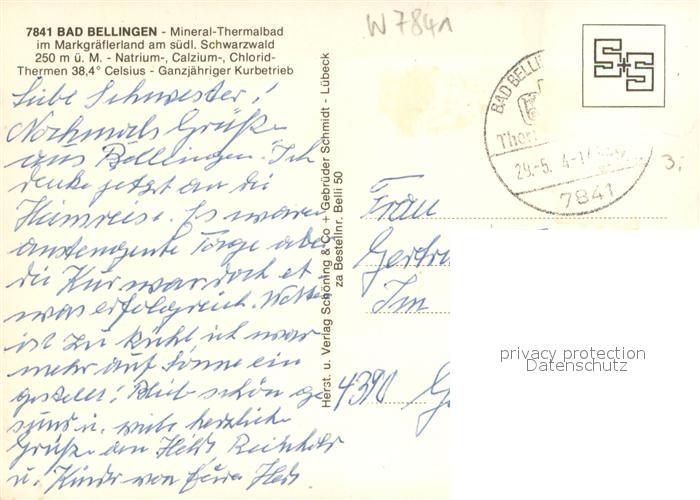 7841 BAD BELLINGEN - Mineral-Thermalbad
im Markgräflerland am südl. Schwarzwald
250 m ü. M. - Natrium-, Calzium-, Chlorid-
Thermen 38,4° Celsius - Ganzjähriger Kurbetrieb
Liebe Schwester!
Nochmals Grüße
aus Bellingen. Ich
denke jetzt an die
Heimreise. Es waren
anstrengente Tage aber
die Kur war doch et
was erfolgreich. Wetter
ist zu kühl ich war
mehr auf Sonne ein
gestellt! Bleib schön ge
sund u. viele herzliche
Grüße an
u. Kinder von
Herst. u. Verlag Schöning & Co + Gebrüder Schmidt - Lübeck
za Bestellnr. Belli 50
W 7841
BAD BELLIN
Ther
29.-5.
7841
S+S
3,-
Frau
Gertru
Im
4390 G
privacy protection
Datenschutz